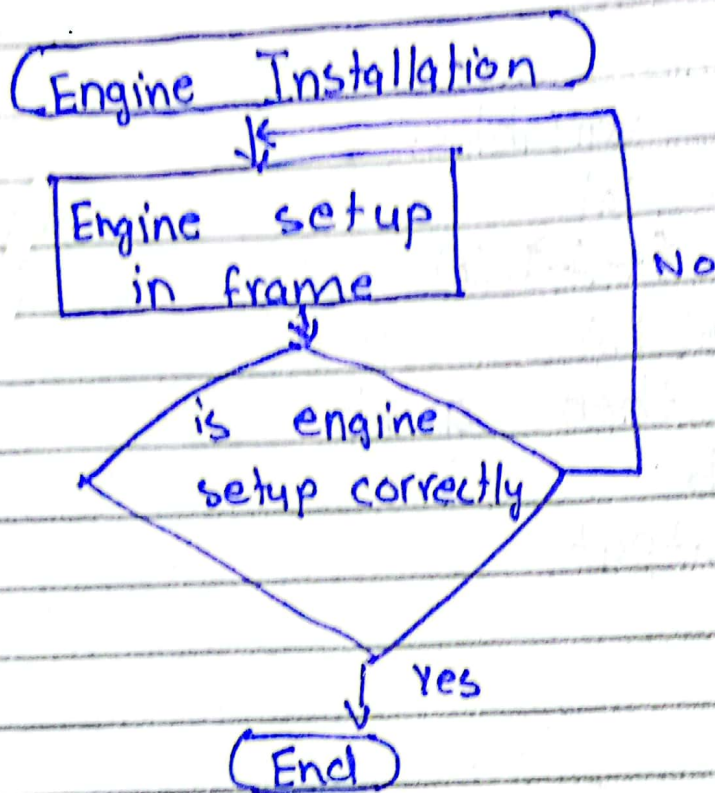 Engine Installation
Engine setup
in frame
No
is engine
setup correctly
Yes
End